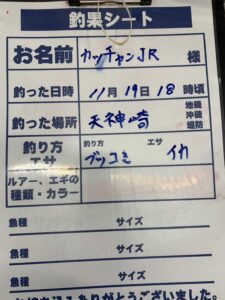 釣果シート
お名前 カッチャンJR 様
釣った日時 11月19日18時頃
釣った場所 天神崎 地磯 沖磯 堤防
釣り方 エサ 釣り方 ブッコミ エサ イカ
ルアー、エギの種類・カラー
魚種 サイズ
魚種 サイズ
魚種 サイズ
ありがとうございました。